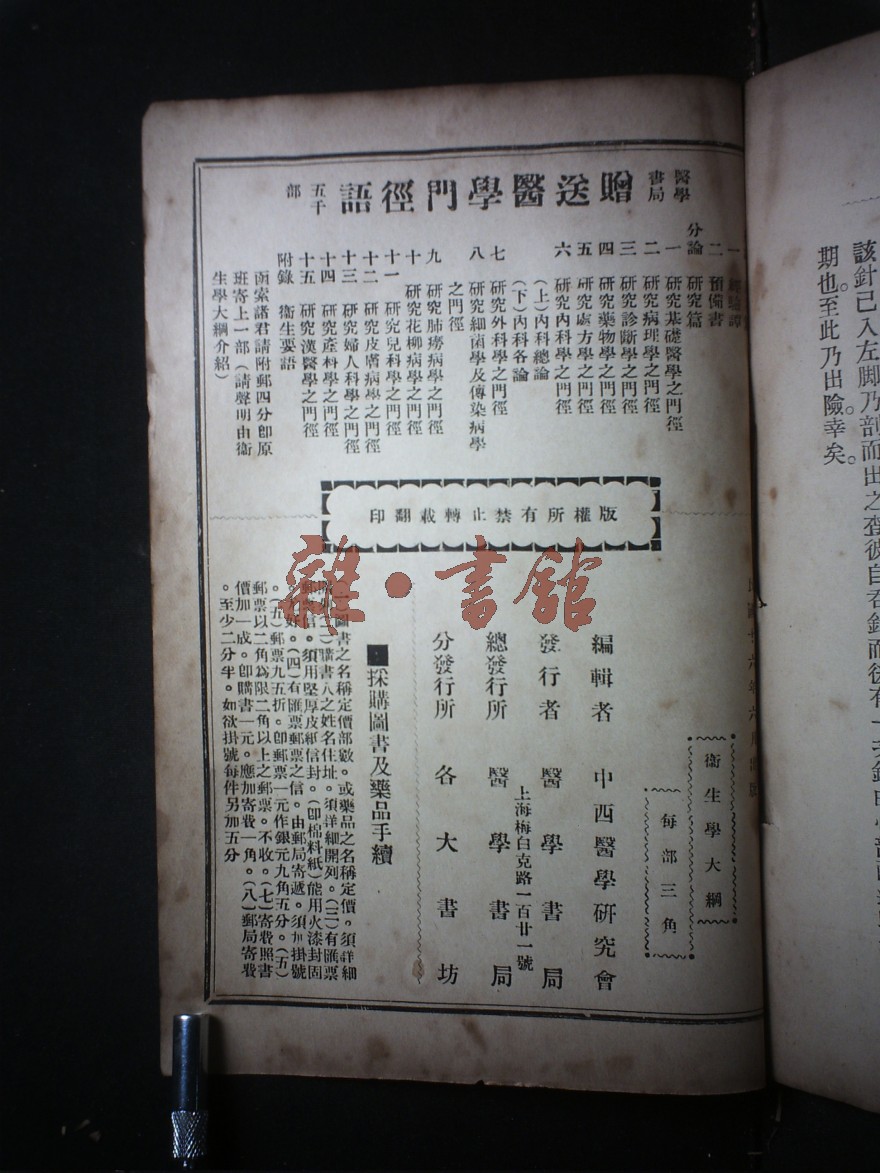 該針已入左脚乃剖而出之
期也。至此乃出險。幸矣。
醫學書局
贈送醫學門徑語
五千部
一
二 預備書
分論 研究篇
一 研究基礎醫學之門徑
二 研究病理學之門徑
三 研究診斷學之門徑
四 研究藥物學之門徑
五 研究處方學之門徑
六 研究內科學之門徑
(上)內科總論
(下)內科各論
七 研究外科學之門徑
八 研究細菌學及傳染病學
之門徑
九 研究肺癆病學之門徑
十 研究花柳病學之門徑
十一 研究兒科學之門徑
十二 研究皮膚病學之門徑
十三 研究婦人科學之門徑
十四 研究產科學之門徑
十五 研究漢醫學之門徑
附錄 衛生要語
函索諸君請附郵四分卽原
班寄上一部(請聲明由衛
生學大綱介紹)
版權所有禁止轉載翻印
衛生學大綱
每部三角
編輯者 中西醫學研究會
發行者 醫學書局
上海梅白克路一百廿一號
總發行所 醫學書局
分發行所 各大書坊
採購圖書及藥品手續
圖書之名稱定價部數。或藥品之名稱定價。須詳細
購書人之姓名住址。須詳細開列。(三)有匯票
須用堅厚皮紙信封。(卽棉料紙)能用火漆封固
(四)有匯票郵票之信。由郵局寄遞。須加掛號
。(五)郵票九五折。卽郵票一元作銀元九角五分。(五)
郵票以二角爲限二角以上之郵票。不收。(七)寄費照書
價加一成。卽購書一元。應加寄費一角。(八)郵局寄費
。至少二分半。如欲掛號每件另加五分
雜·書舘